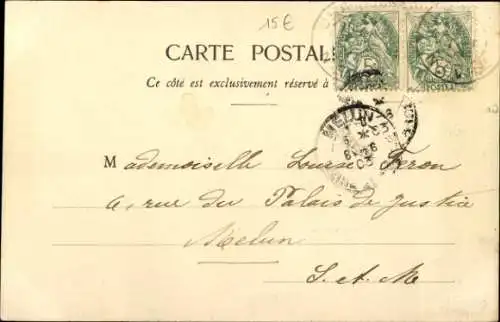 15 €
CARTE POSTAL
Ce côté est exclusivement réservé à
MELUN
Mademoiselle Louise Féron
rue du Palais de Justice
Melun
S. et M.